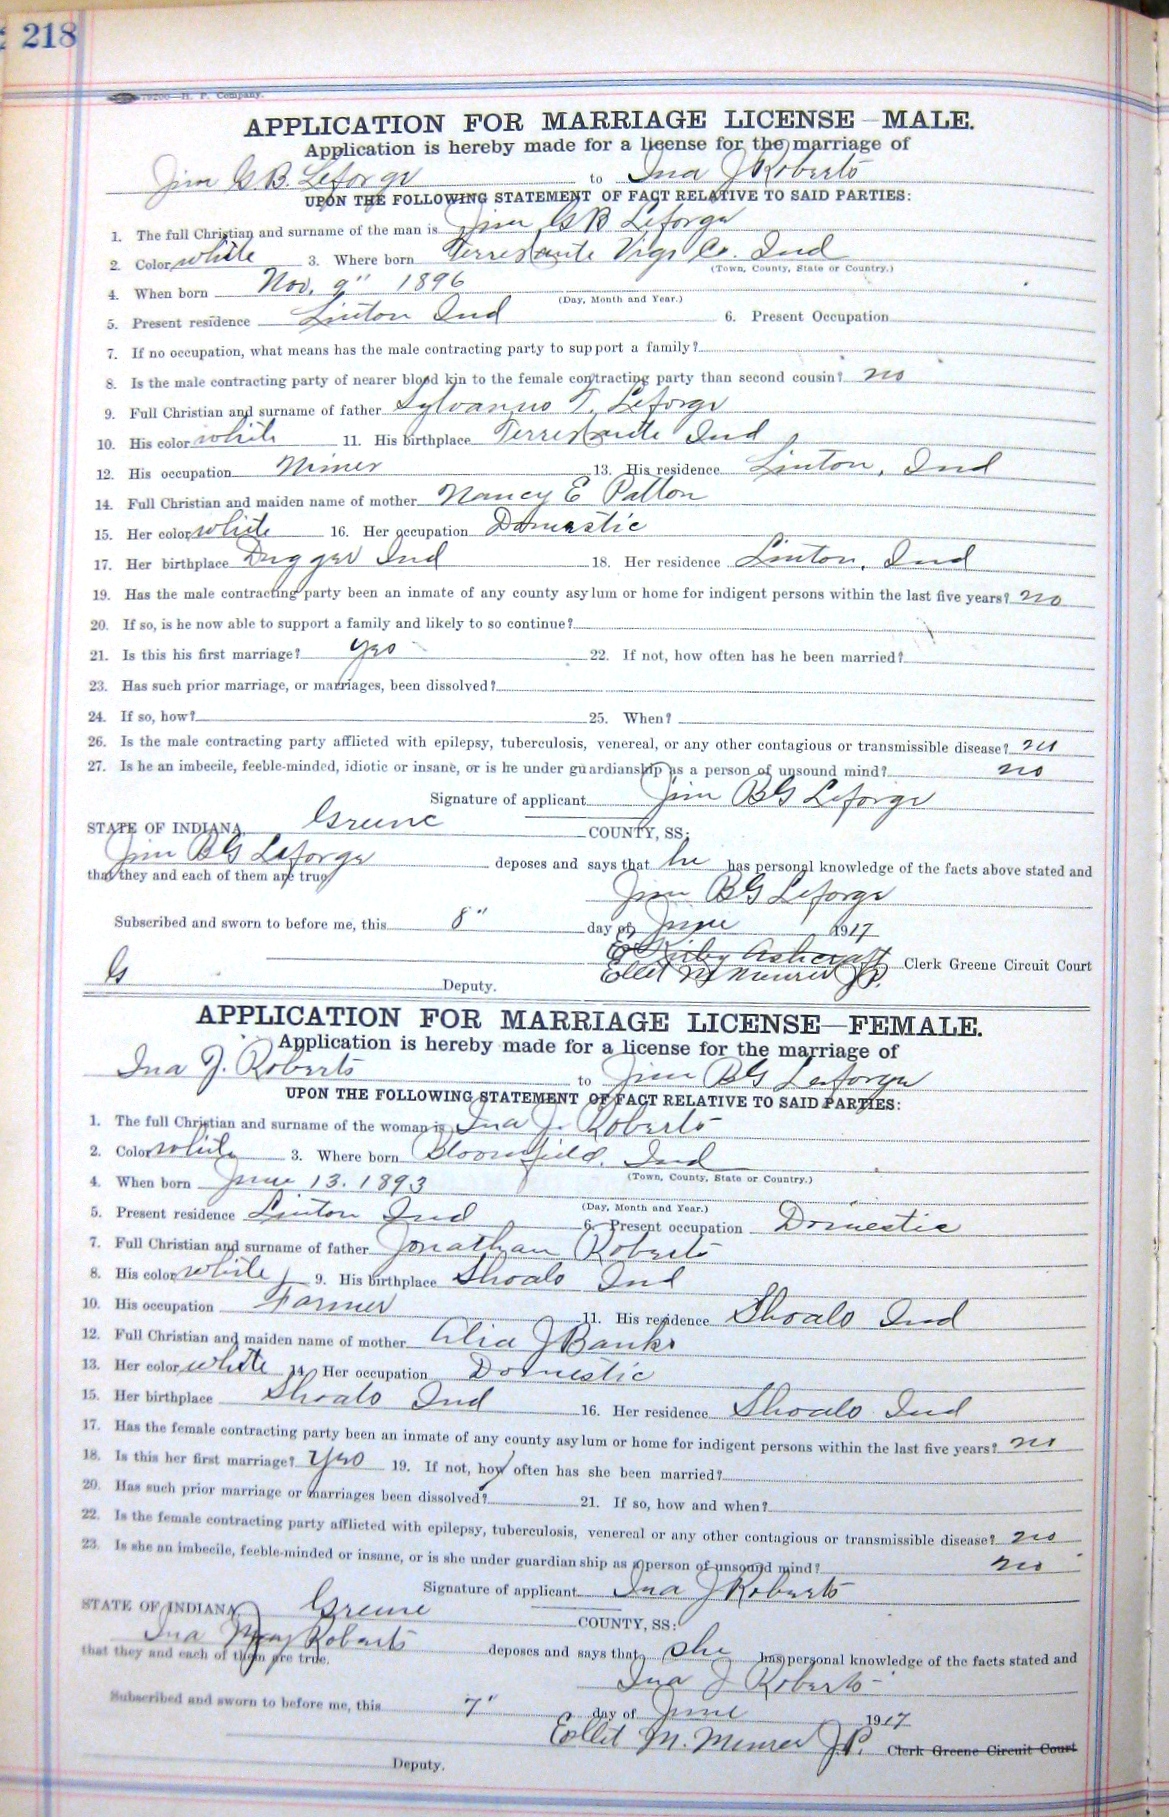 218
H. P. Company.
APPLICATION FOR MARRIAGE LICENSE—MALE.
Application is hereby made for a license for the marriage of
Jim G B. Leforge to Ina J Roberts
UPON THE FOLLOWING STATEMENT OF FACT RELATIVE TO SAID PARTIES:
1. The full Christian and surname of the man is Jim G B Leforge
2. Color white 3. Where born Terre Haute Vigo Co. Ind
(Town, County, State or Country.)
4. When born Nov. 9" 1896
(Day, Month and Year.)
5. Present residence Linton Ind 6. Present Occupation
7. If no occupation, what means has the male contracting party to support a family?
8. Is the male contracting party of nearer blood kin to the female contracting party than second cousin? no
9. Full Christian and surname of father Sylvanus T. Leforge
10. His color white 11. His birthplace Terre Haute Ind
12. His occupation Miner 13. His residence Linton, Ind
14. Full Christian and maiden name of mother Nancy E Patton
15. Her color white 16. Her occupation Domestic
17. Her birthplace Dugger Ind 18. Her residence Linton, Ind
19. Has the male contracting party been an inmate of any county asylum or home for indigent persons within the last five years? no
20. If so, is he now able to support a family and likely to so continue?
21. Is this his first marriage? yes 22. If not, how often has he been married?
23. Has such prior marriage, or marriages, been dissolved?
24. If so, how? 25. When?
26. Is the male contracting party afflicted with epilepsy, tuberculosis, venereal, or any other contagious or transmissible disease? no
27. Is he an imbecile, feeble-minded, idiotic or insane, or is he under guardianship as a person of unsound mind? no
Signature of applicant Jim B G Leforge
STATE OF INDIANA, Greene COUNTY, SS:
Jim B G Leforge deposes and says that he has personal knowledge of the facts above stated and
that they and each of them are true
Jim B G Leforge
Subscribed and sworn to before me, this 8" day of June 1917
Kirby Ashcraft
G Ellet M J P. Clerk Greene Circuit Court
Deputy.
APPLICATION FOR MARRIAGE LICENSE—FEMALE.
Application is hereby made for a license for the marriage of
Ina J. Roberts to Jim B G Leforge
UPON THE FOLLOWING STATEMENT OF FACT RELATIVE TO SAID PARTIES:
1. The full Christian and surname of the woman is Ina J. Roberts
2. Color white 3. Where born Bloomfield, Ind
(Town, County, State or Country.)
4. When born June 13. 1893
(Day, Month and Year.)
5. Present residence Linton Ind 6. Present occupation Domestic
7. Full Christian and surname of father Jonathan Roberts
8. His color white 9. His birthplace Shoals Ind
10. His occupation Farmer 11. His residence Shoals Ind
12. Full Christian and maiden name of mother J Banks
13. Her color white 14. Her occupation Domestic
15. Her birthplace Shoals Ind 16. Her residence Shoals Ind
17. Has the female contracting party been an inmate of any county asylum or home for indigent persons within the last five years? no
18. Is this her first marriage? Yes 19. If not, how often has she been married?
20. Has such prior marriage or marriages been dissolved? 21. If so, how and when?
22. Is the female contracting party afflicted with epilepsy, tuberculosis, venereal or any other contagious or transmissible disease? no
23. Is she an imbecile, feeble-minded or insane, or is she under guardianship as a person of unsound mind? no
Signature of applicant Ina J Roberts
STATE OF INDIANA, Greene COUNTY, SS:
Ina Roberts deposes and says that she has personal knowledge of the facts stated and
that they and each of them are true.
Ina J Roberts
Subscribed and sworn to before me, this 7" day of June 1917
Ellet M. J.P. Clerk Greene Circuit Court
Deputy.